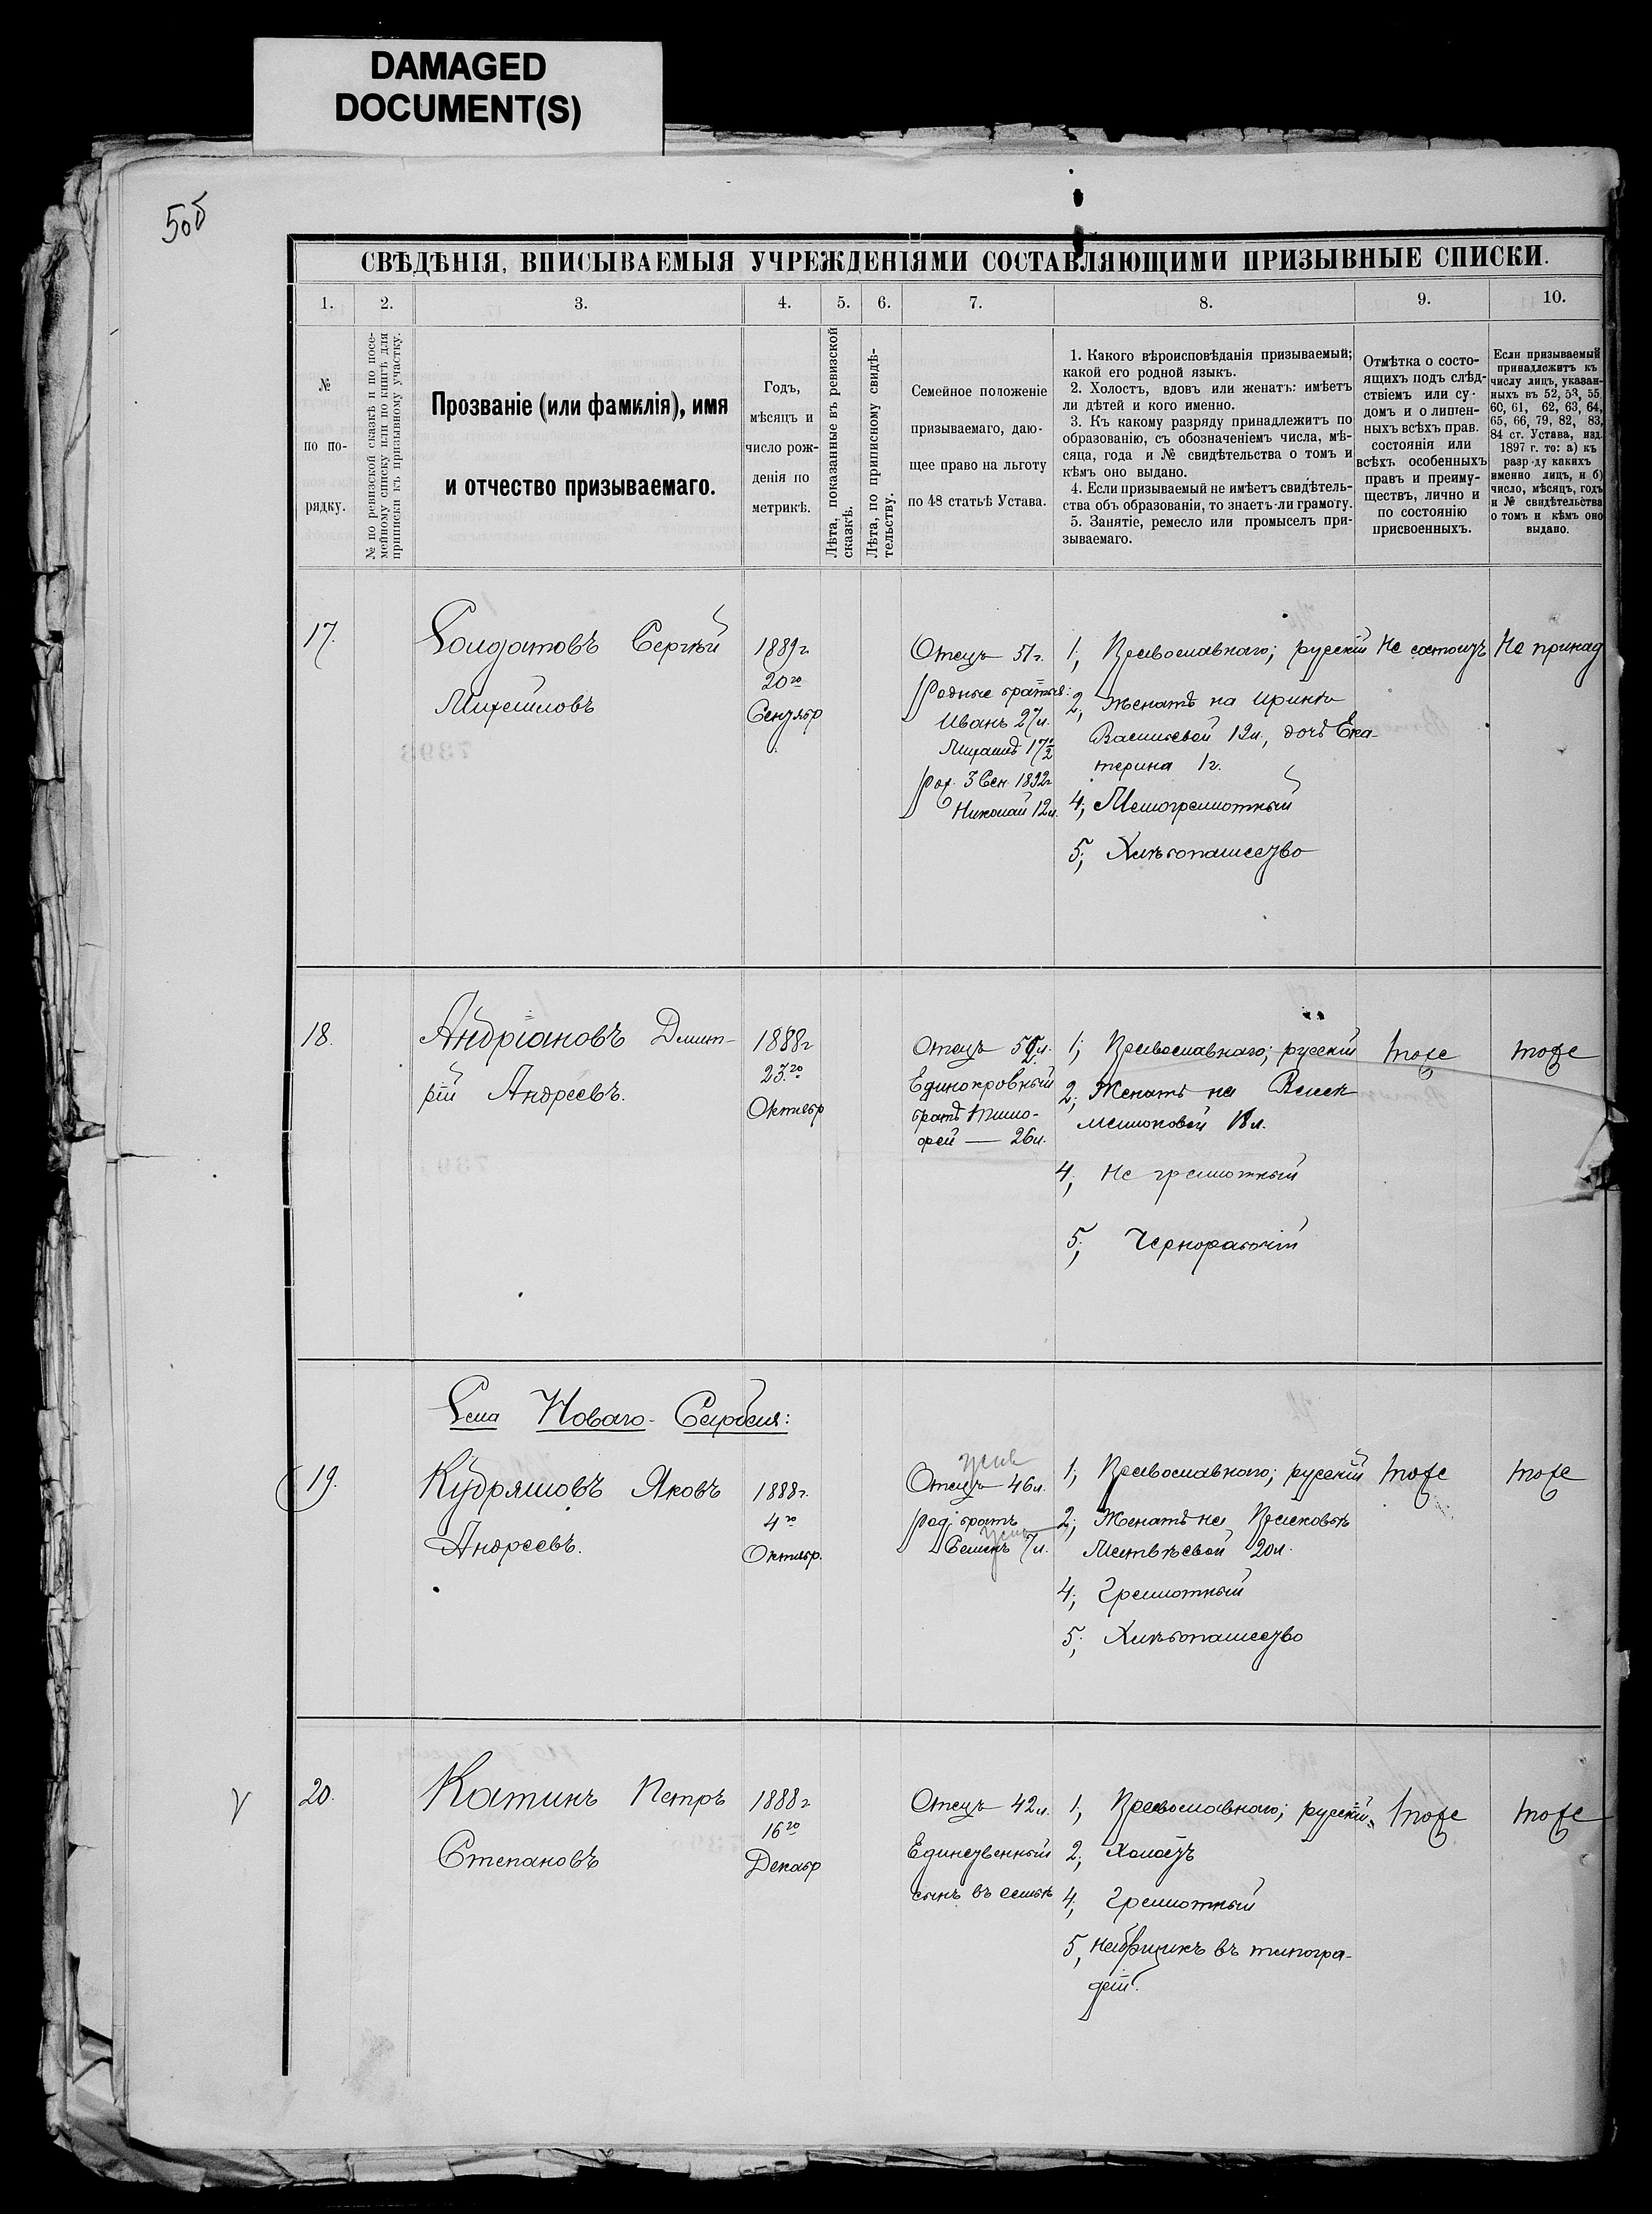 DAMAGED
DOCUMENT(S)
50б
СВѢДѢНІЯ, ВПИСЫВАЕМЫЯ УЧРЕЖДЕНІЯМИ СОСТАВЛЯЮЩИМИ ПРИЗЫВНЫЕ СПИСКИ.
1. 2. 3. 4. 5. 6. 7. 8. 9. 10.
№
по по-
рядку.
№ по ревизской сказкѣ и по посе-
мейному списку или по книгѣ для
приписки къ призывному участку.
Прозваніе (или фамилія), имя
и отчество призываемаго.
Годъ,
мѣсяцъ и
число рож-
денія по
метрикѣ.
Лѣта, показанные въ ревизской
сказкѣ.
Лѣта, по приписному свидѣ-
тельству.
Семейное положеніе
призываемаго, даю-
щее право на льготу
по 48 статьѣ Устава.
1. Какого вѣроисповѣданія призываемый;
какой его родной языкъ.
2. Холостъ, вдовъ или женатъ: имѣетъ
ли дѣтей и кого именно.
3. Къ какому разряду принадлежитъ по
образованію, съ обозначеніемъ числа, мѣ-
сяца, года и № свидѣтельства о томъ и
кѣмъ оно выдано.
4. Если призываемый не имѣетъ свидѣтель-
ства объ образованіи, то знаетъ-ли грамоту.
5. Занятіе, ремесло или промыселъ при-
зываемаго.
Отмѣтка о состо-
ящихъ подъ слѣд-
ствіемъ или су-
домъ и о лишен-
ныхъ всѣхъ прав.
состоянія или
всѣхъ особенныхъ
правъ и преиму-
ществъ, лично и
по состоянію
присвоенныхъ.
Если призываемый
принадлежитъ къ
числу лицъ, указан-
ныхъ въ 52, 53, 55,
60, 61, 62, 63, 64,
65, 66, 79, 82, 83,
84 ст. Устава, изд.
1897 г. то: а) къ
разр-ду какихъ
именно лицъ, и б)
число, мѣсяцъ, годъ
и № свидѣтельства
о томъ и кѣмъ оно
выдано.
17.
Солдатовъ Сергѣй
Михайловъ
1889 г.
20го
Сентябр
Отецъ 51 г.
родные братья:
Иванъ 27 л.
Михаилъ 17½
род. 3 Сен. 1892 г
Николай 12 л.
1; Православнаго; русскій
2; Женатъ на Иринѣ
Васильевой 19 л., дочь Ека-
терина 1 г.
4; Малограмотный
5; Хлѣбопашество
Не состоитъ
Не принад
18.
Андріановъ Дмит-
рій Андреевъ.
1888 г
23.го
Октябр
Отецъ л.
Единокровный
братъ Тимо-
фей — 26 л.
1; Православнаго; русскій
2; Женатъ на
18 л.
4; Не грамотный
5; Чернорабочій
тоже
тоже
Села Новаго-Сардбая:
19.
Кудряшовъ Яковъ
Андреевъ.
1888 г.
4го
Октябр.
Отецъ 46 л.
род. братъ
Семенъ 7 л.
1; Православнаго; русскій
2; Женатъ на Прасковьѣ
Матвѣевой 20 л.
4; Грамотный
5; Хлѣбопашество
тоже
тоже
20.
Катинъ Петръ
Степановъ
1888 г
16го
Декабр
Отецъ 42 л.
Единственный
сынъ въ семьѣ
1; Православнаго; русскій.
2; Холостъ
4; Грамотный
5; Наборщикъ въ типогра-
фіи.
тоже
тоже